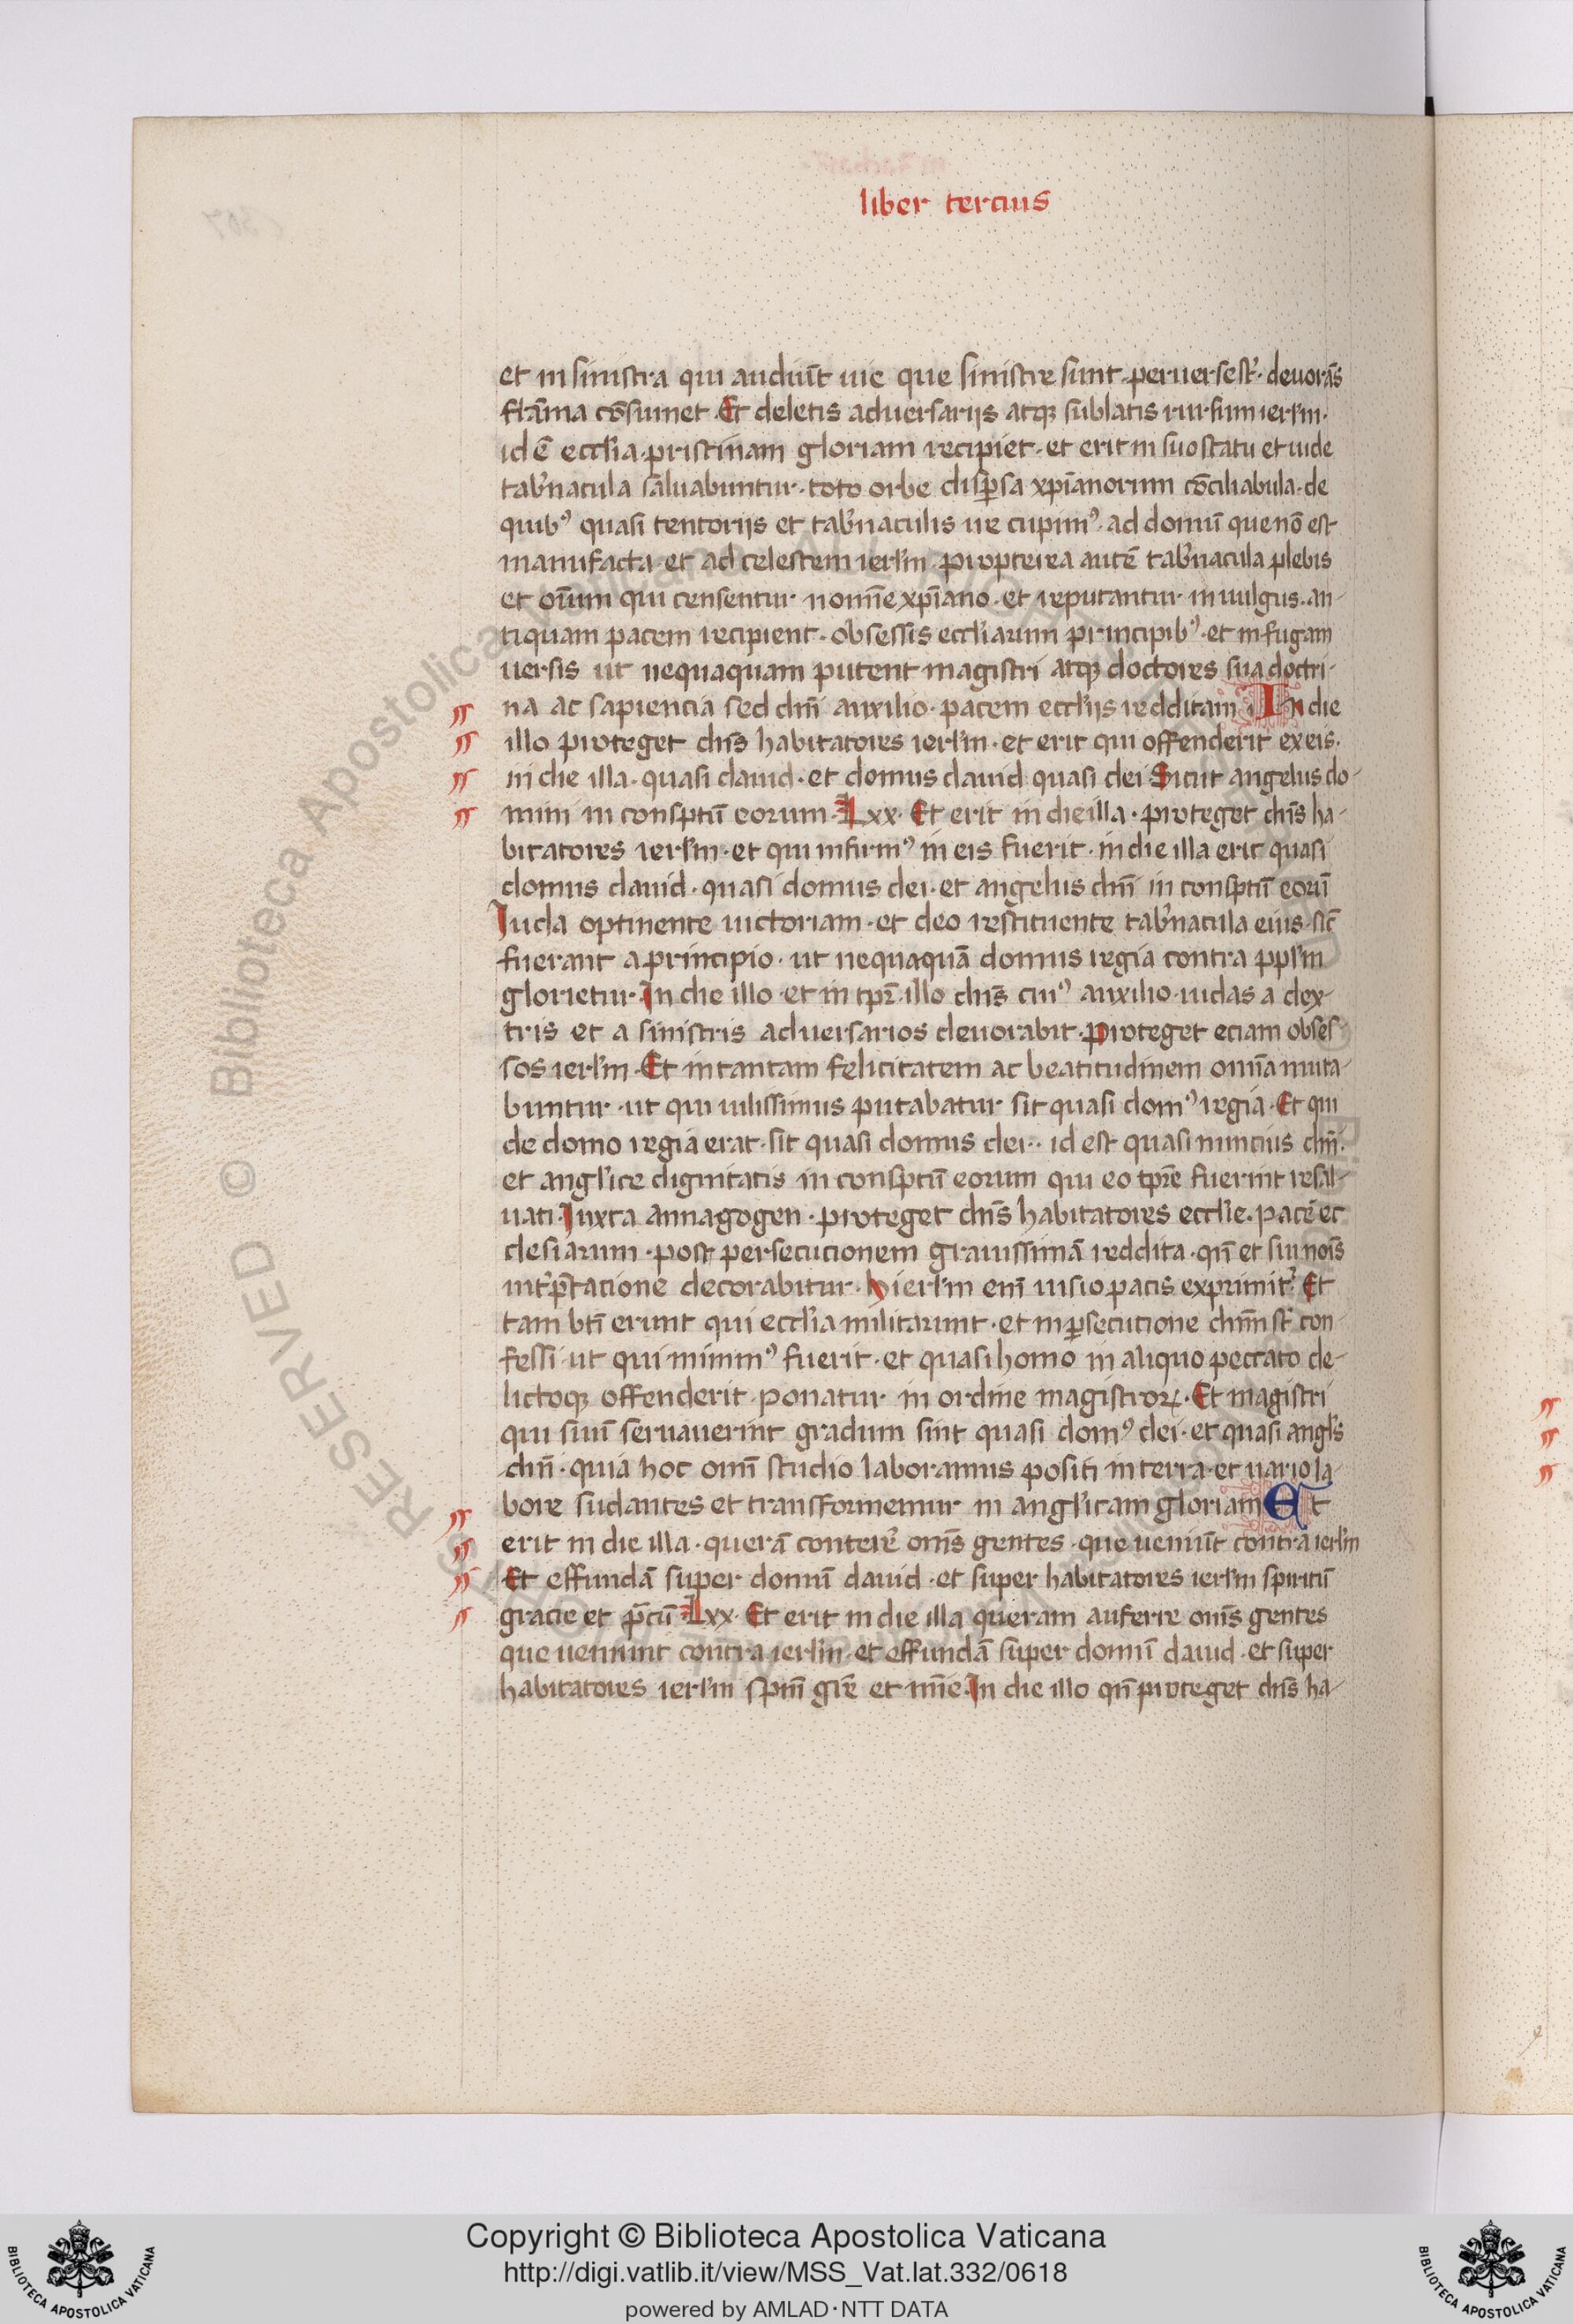 liber tercius
et in sinistra qui audiūt uie que sinistre sunt · peruerse st᷑ · deuorās
flāma cōsumet · Et deletis aduersarijs atqꝫ sublatis rursum ierl̅m ·
id ē eccl̅ia · pristinam gloriam recipiet · et erit in suo statu et iude
tab̾nacula saluabuntur · toto orbe disꝑsa xp̅ianorum cōciliabula · de
quibꝰ quasi tentorijs et tab̾naculis ire cupimꝰ · ad domū que nō est
manufacta · et ad celestem ierl̅m · propterea autē tab̾nacula plebis
et oīum qui censentur nomīe xp̅iano · et reputantur in uulgus · an-
tiquam pacem recipient · obsessis eccl̅iarum principibꝰ · et in fugam
uersis ut nequaquam putent magistri atqꝫ doctores sua doctri-
na ac sapiencia sed dn̅i auxilio · pacem eccl̅ijs redditam · In die
illo proteget dn̅s habitatores ierl̅m · et erit qui offenderit ex eis ·
in die illa · quasi dauid · et domus dauid quasi dei · Sicut angelus do-
mini in consp̅tū eorum · Lxx · Et erit in die illa · proteget dn̅s ha-
bitatores ierl̅m · et qui infirmꝰ in eis fuerit · in die illa erit quasi
domus dauid · quasi domus dei · et angelus dn̅i in consp̅tū eorū
Iuda optinente uictoriam · et deo restituente tab̾nacula eius · sic̅
fuerant a principio · ut nequaquā domus regia contra ppl̅m
glorietur · In die illo · et in tp̅r̅ illo dn̅s cuiꝰ auxilio · iudas a dex-
tris et a sinistris aduersarios deuorabit · proteget eciam obses-
sos ierl̅m · Et in tantam felicitatem ac beatitudinem omīa muta-
buntur · ut qui uilissimus putabatur sit quasi domꝰ regia · Et qui
de domo regia erat · sit quasi domus dei · · id est quasi nuncius dn̅i ·
et angl̅ice dignitatis in consp̅tū eorum qui eo tp̅re fuerint resal-
uati · Iuxta annagogen · proteget dn̅s habitatores eccl̅ie · pacē ec
clesiarum · post persecucionem grauissimā reddita · qn̅ et sui noīs
int̾p̅tacione decorabitur · hierl̅m enī uisio pacis exprimit᷑ · Et
tam bt̅i erunt qui eccl̅ia militarunt · et in ꝑsecucione dn̅m st᷑ con-
fessi · ut qui minimꝰ fuerit · et quasi homo in aliquo peccato de-
lictoqꝫ offenderit · ponatur in ordine magistroꝝ · Et magistri
qui suū seruauerint gradum sint quasi domꝰ dei · et quasi angl̅s
dn̅i · quia hoc omī studio laboramus positi in terra · et uario la-
bore sudantes et transformemur in angl̅icam gloriam Et
erit in die illa · querā conter̾e om̅s gentes · que ueniūt contra ierl̅m
Et effundā super domū dauid · et super habitatores ierl̅m spiritū
gracie et p̅cū · Lxx · Et erit in die illa queram auferre om̅s gentes
que ueniunt contra ierl̅m · et effundā super domū dauid · et super
habitatores ierl̅m sp̅m gr̅e et mīe · In die illo qn̅ proteget dn̅s ha-
© Biblioteca Apostolica Vaticana
RESERVED
Copyright © Biblioteca Apostolica Vaticana
http://digi.vatlib.it/view/MSS_Vat.lat.332/0618
powered by AMLAD·NTT DATA
BIBLIOTECA APOSTOLICA VATICANA
BIBLIOTECA APOSTOLICA VATICANA